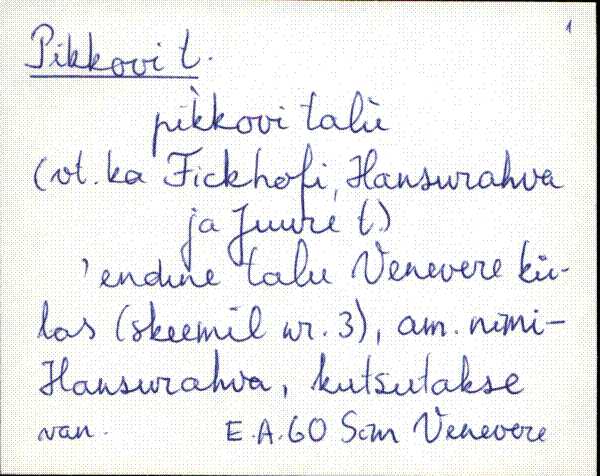 1
Pikkovi t.
pìkkovi talù
(vt. ka Fickhofi, Hansurahva
ja Juuri t.)
'endine talu Venevere kü-
las (skeemil nr. 3), am. nimi-
Hansurahva, kutsutakse
van. E.A.60 Sim Venevere